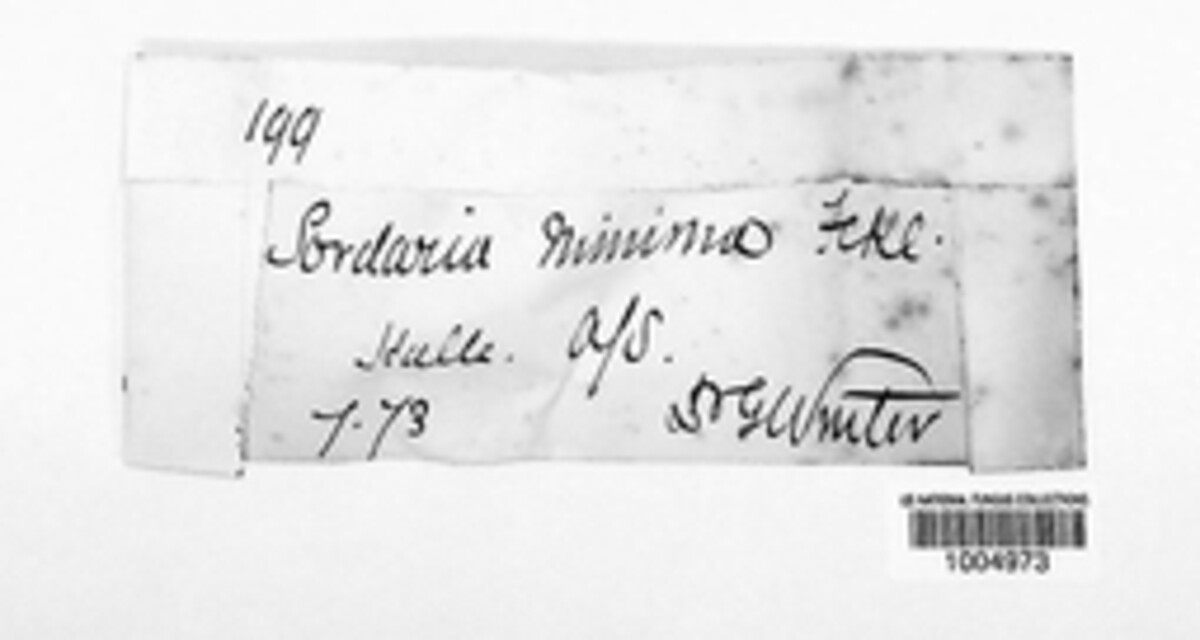 199
Sordaria minima Fckl.
Halle. a/S.
7.73
Dr G Winter
US NATIONAL FUNGUS COLLECTIONS
1004973